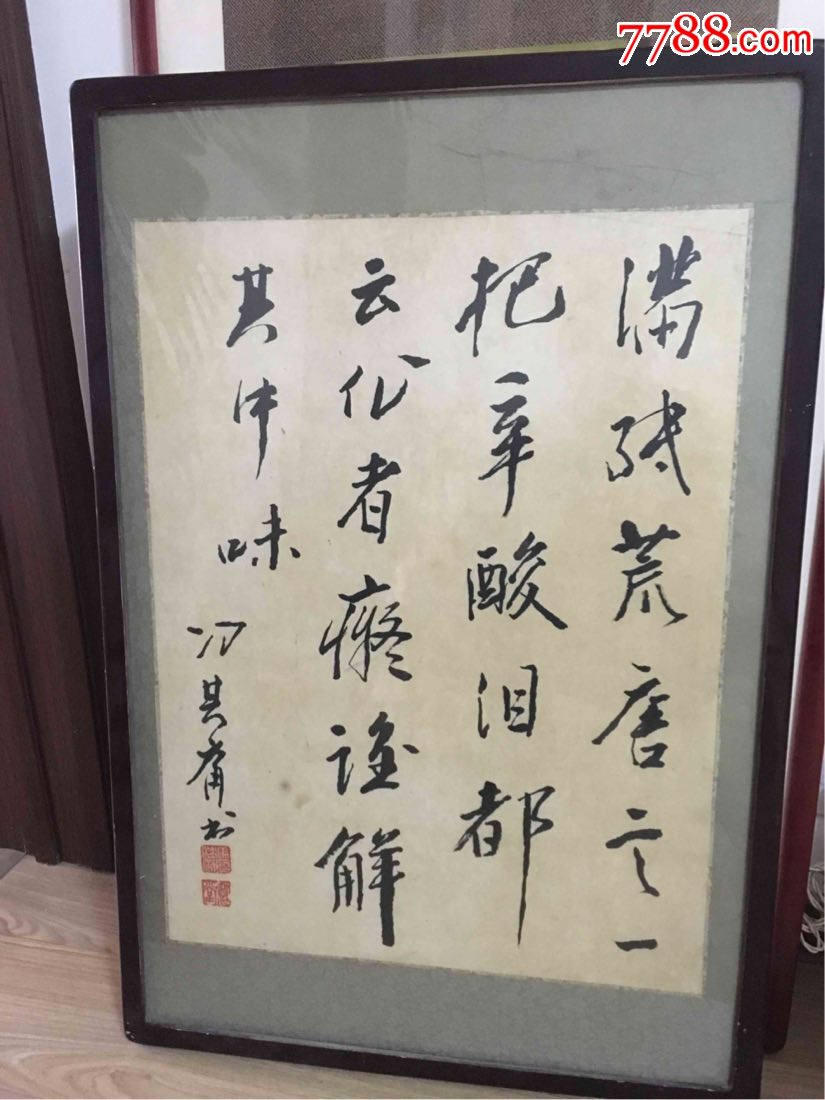 7788.com
满纸荒唐言一
把辛酸泪都
云作者痴谁解
其中味
冯其庸书